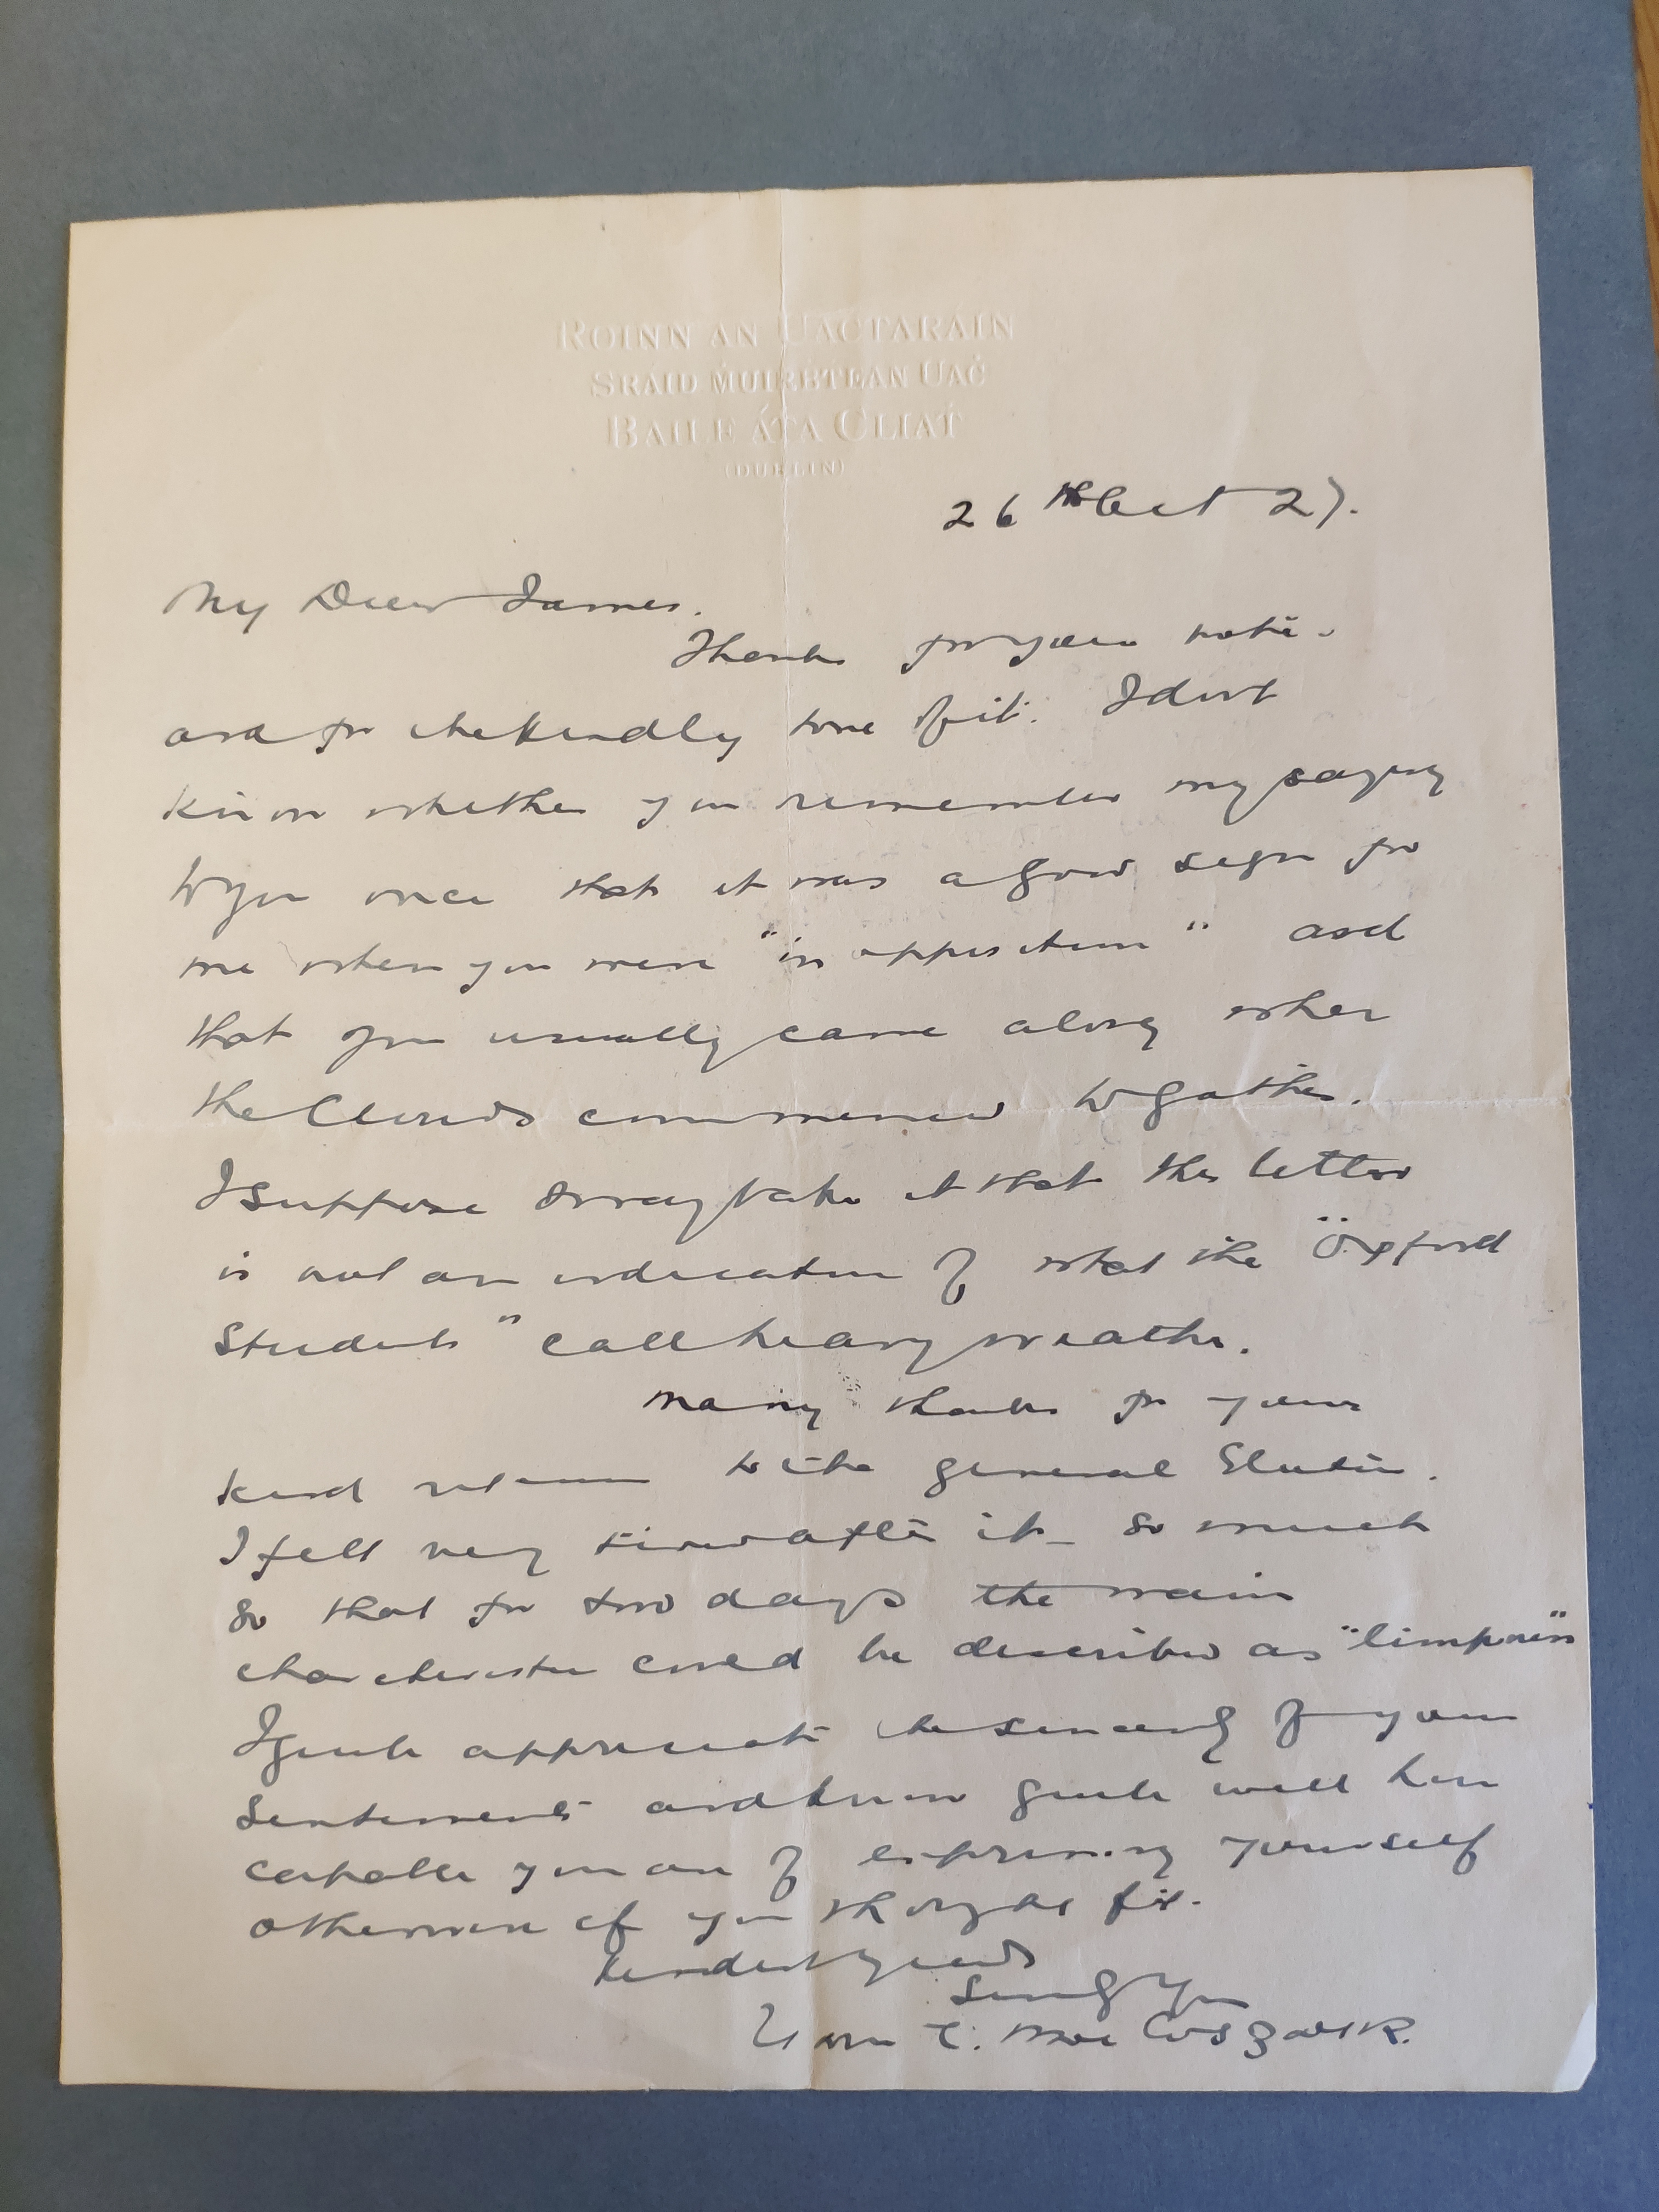 ROINN AN UACTARÁIN
SRÁID ṀUIRḂTEAN UAĊ
BAILE ÁṪA CLIAṪ
(DUBLIN)
26th Oct 27.
My Dear James.
Thanks for your note.
and for the kindly tone of it. I dont
know whether you remember my saying
to you once that it was a good sign for
me when you were "in opposition" and
that you usually came along when
the Clouds commenced to gather.
I suppose I may take it that this letter
is not an indication of what the "Oxford
Students" call heavy weather.
Many thanks for your
kind reference to the general Election.
I felt very tired after it - so much
so that for two days the main
characteristic could be described as "limpness"
I quite appreciate the sincerity of your
sentiments and know quite well how
capable you are of expressing yourself
otherwise if you thought fit.
Kindest regards
Sincerely Yours
Liam T. Mac Cosgair.